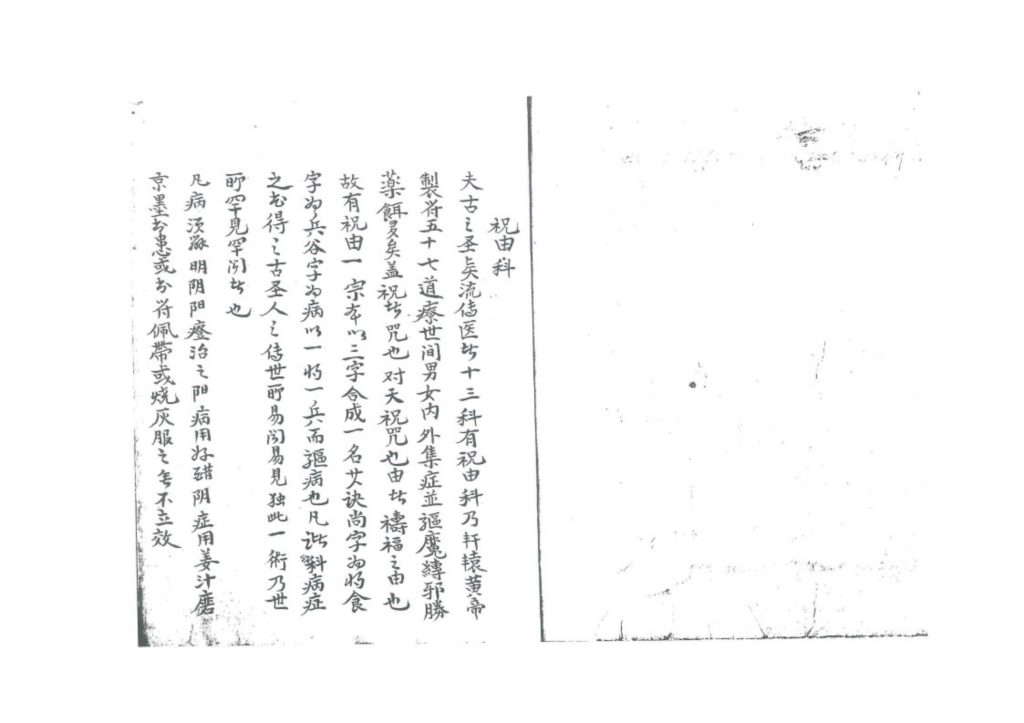 祝由科
夫古之圣矣流传医者十三科有祝由科乃軒轅黃帝
製符五十七道療世间男女内外集症並驅魔縛邪勝
薬餌多矣盖祝者咒也对天祝咒也由者禱福之由也
故有祝由一宗本以三字合成一名其诀尚字为将食
字为兵谷字为病以一将一兵而驅病也凡病症
之书得之古圣人之传世所易闻易見独此一術乃世
所罕見罕闻者也
凡病须明阴阳治之阳病用好醋阴症用姜汁磨
京墨书患或书符佩帶或烧灰服之不立效